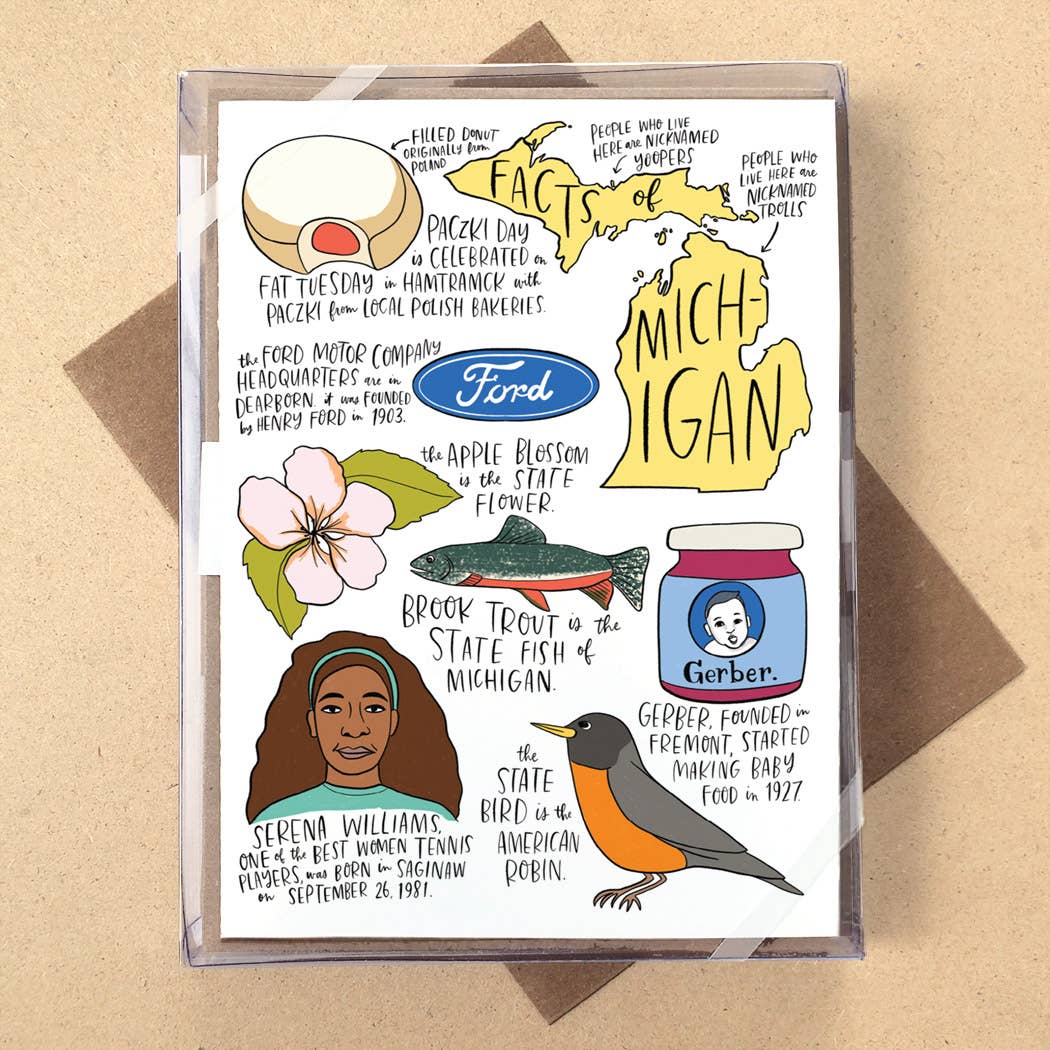 FILLED DONUT
ORIGINALLY from
POLAND
PEOPLE WHO LIVE
HERE are NICKNAMED
YOOPERS
PEOPLE WHO
LIVE HERE are
NICKNAMED
TROLLS
FACTS of
MICH-
IGAN
PACZKI DAY
is CELEBRATED on
FAT TUESDAY in HAMTRAMCK with
PACZKI from LOCAL POLISH BAKERIES.
the FORD MOTOR COMPANY
HEADQUARTERS are in
DEARBORN. it was FOUNDED
by HENRY FORD in 1903.
Ford
the APPLE BLOSSOM
is the STATE
FLOWER.
BROOK TROUT is the
STATE FISH of
MICHIGAN.
Gerber.
GERBER, FOUNDED in
FREMONT, STARTED
MAKING BABY
FOOD in 1927.
SERENA WILLIAMS,
ONE of the BEST WOMEN TENNIS
PLAYERS, was BORN in SAGINAW
on SEPTEMBER 26, 1981.
the
STATE
BIRD is the
AMERICAN
ROBIN.